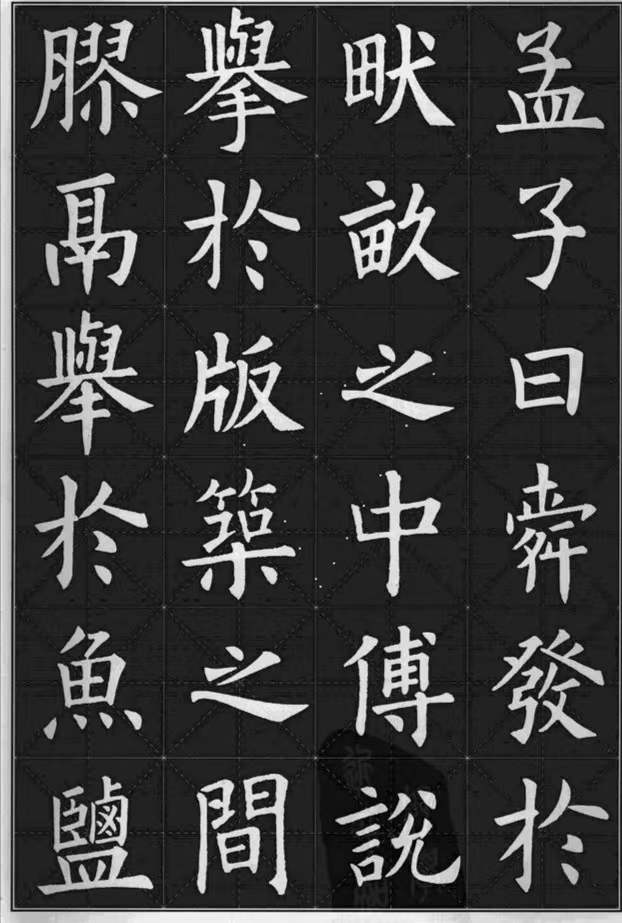 孟子曰舜發於
畎畝之中傅說
舉於版築之間
膠鬲舉於魚鹽